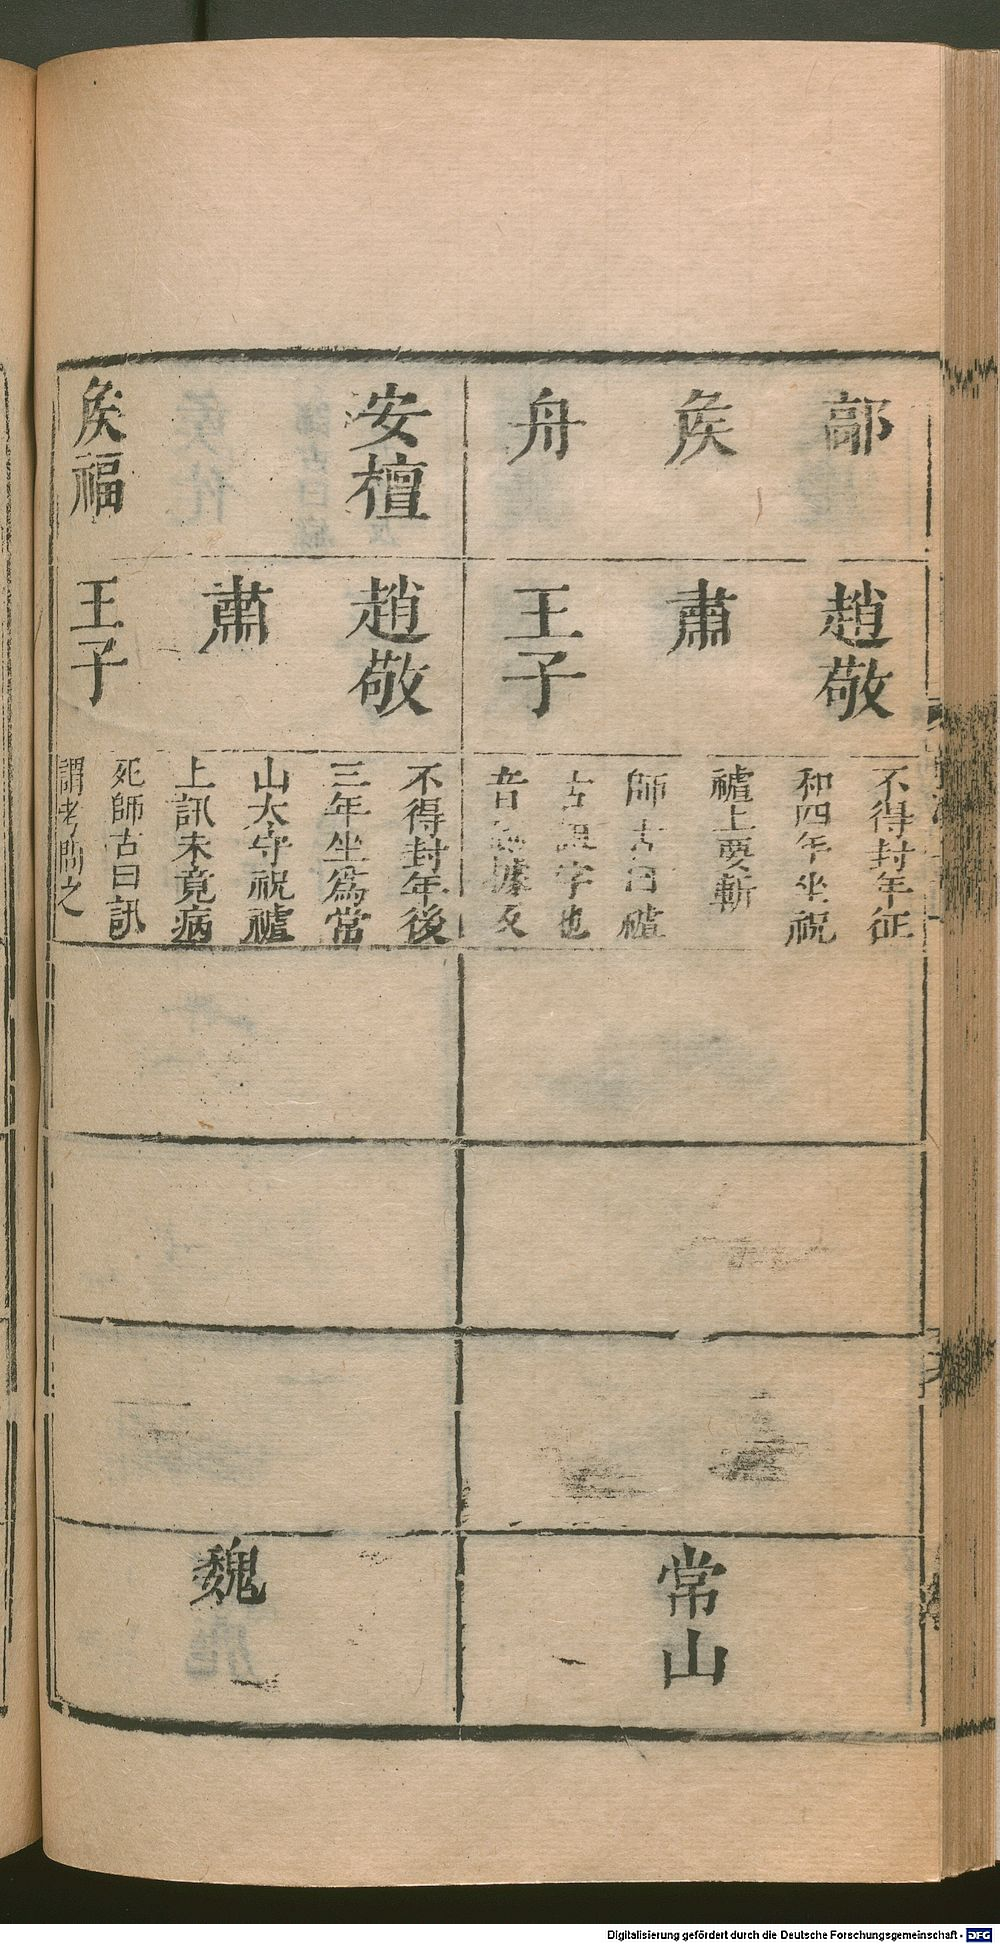 鄗
侯
舟
趙敬
肅
王子
不得封年征
和四年坐祝
䄏上要斬
師古曰䄏
古詛字也
音側據反
常山
安檀
侯福
趙敬
肅
王子
不得封年後
三年坐爲常
山大守祝䄏
上訊未竟病
死師古曰訊
謂考問之
魏
Digitalisierung gefördert durch die Deutsche Forschungsgemeinschaft - DFG